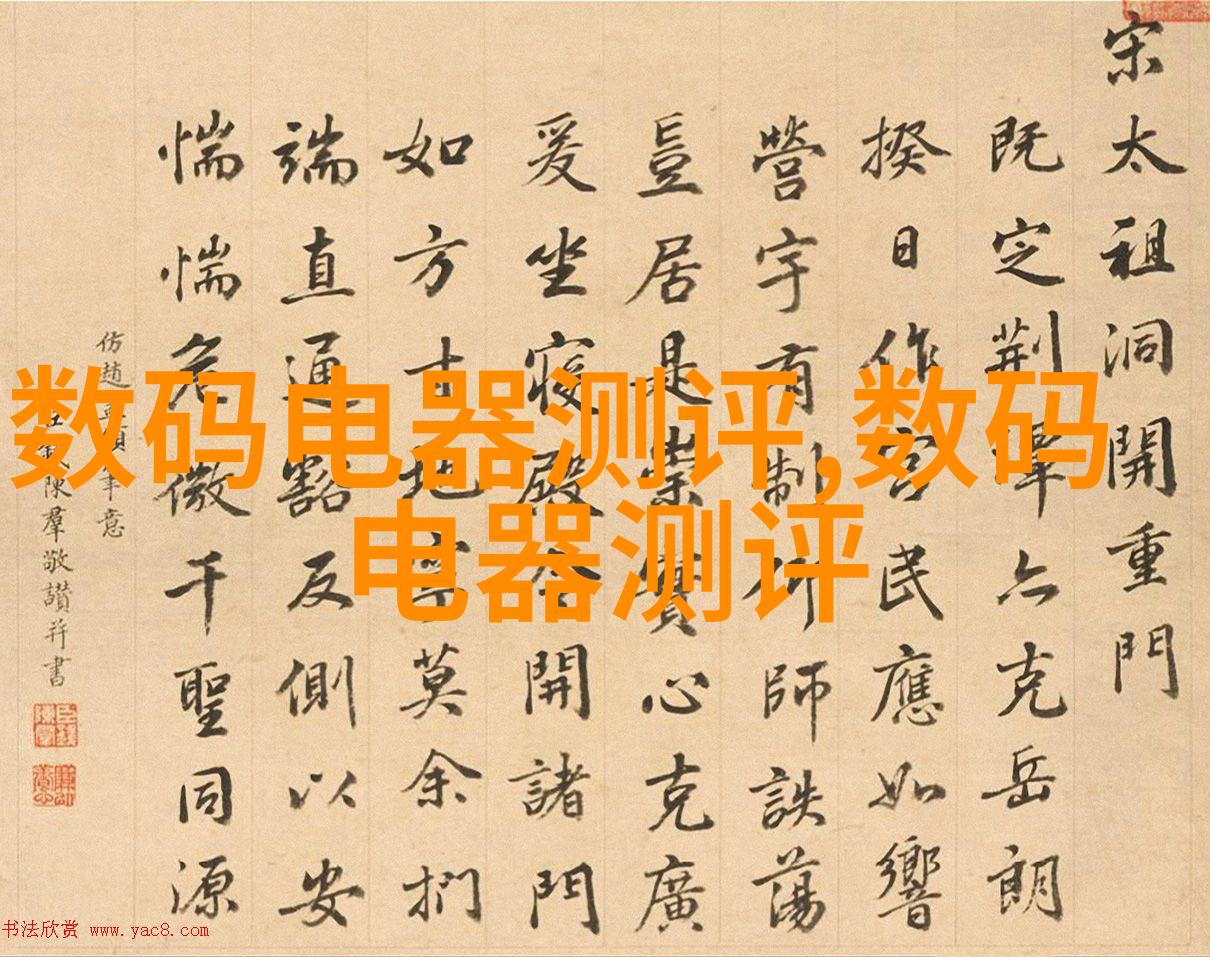 数码电器测评,数码
电器测评
宋太祖洞開重門
既定荆亦克岳朗
揆日作宫民應如響
營宇有制師詄蕩
豈居是崇實心克廣
爰坐寝殿令開諸門
如方寸地莫余捫
端直通豁反側以安
惴惴危微千聖同源
仿趙意
陳羣敬讚并書
书法欣赏 www.yac8.com